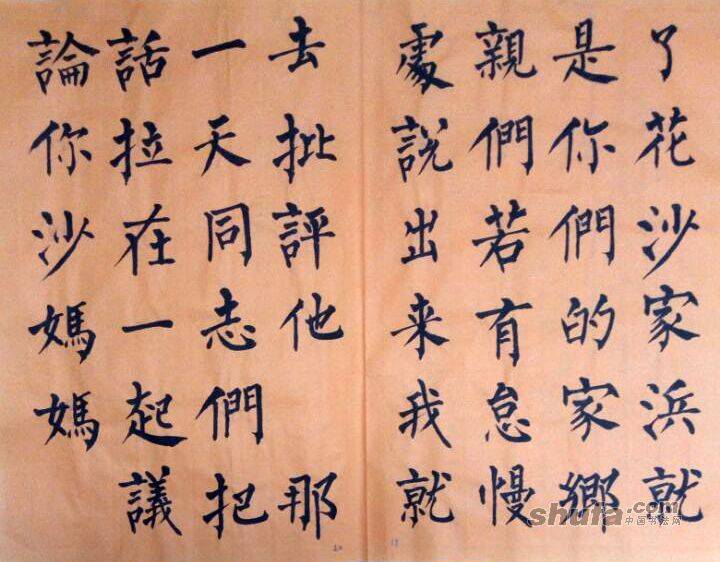 了花沙家浜就
是你們的家鄉
親們若有怠慢
處說出来我就
去批評他 那
一天同志們把
話拉在一起議
論你沙媽媽
shufa.com
中国书法网